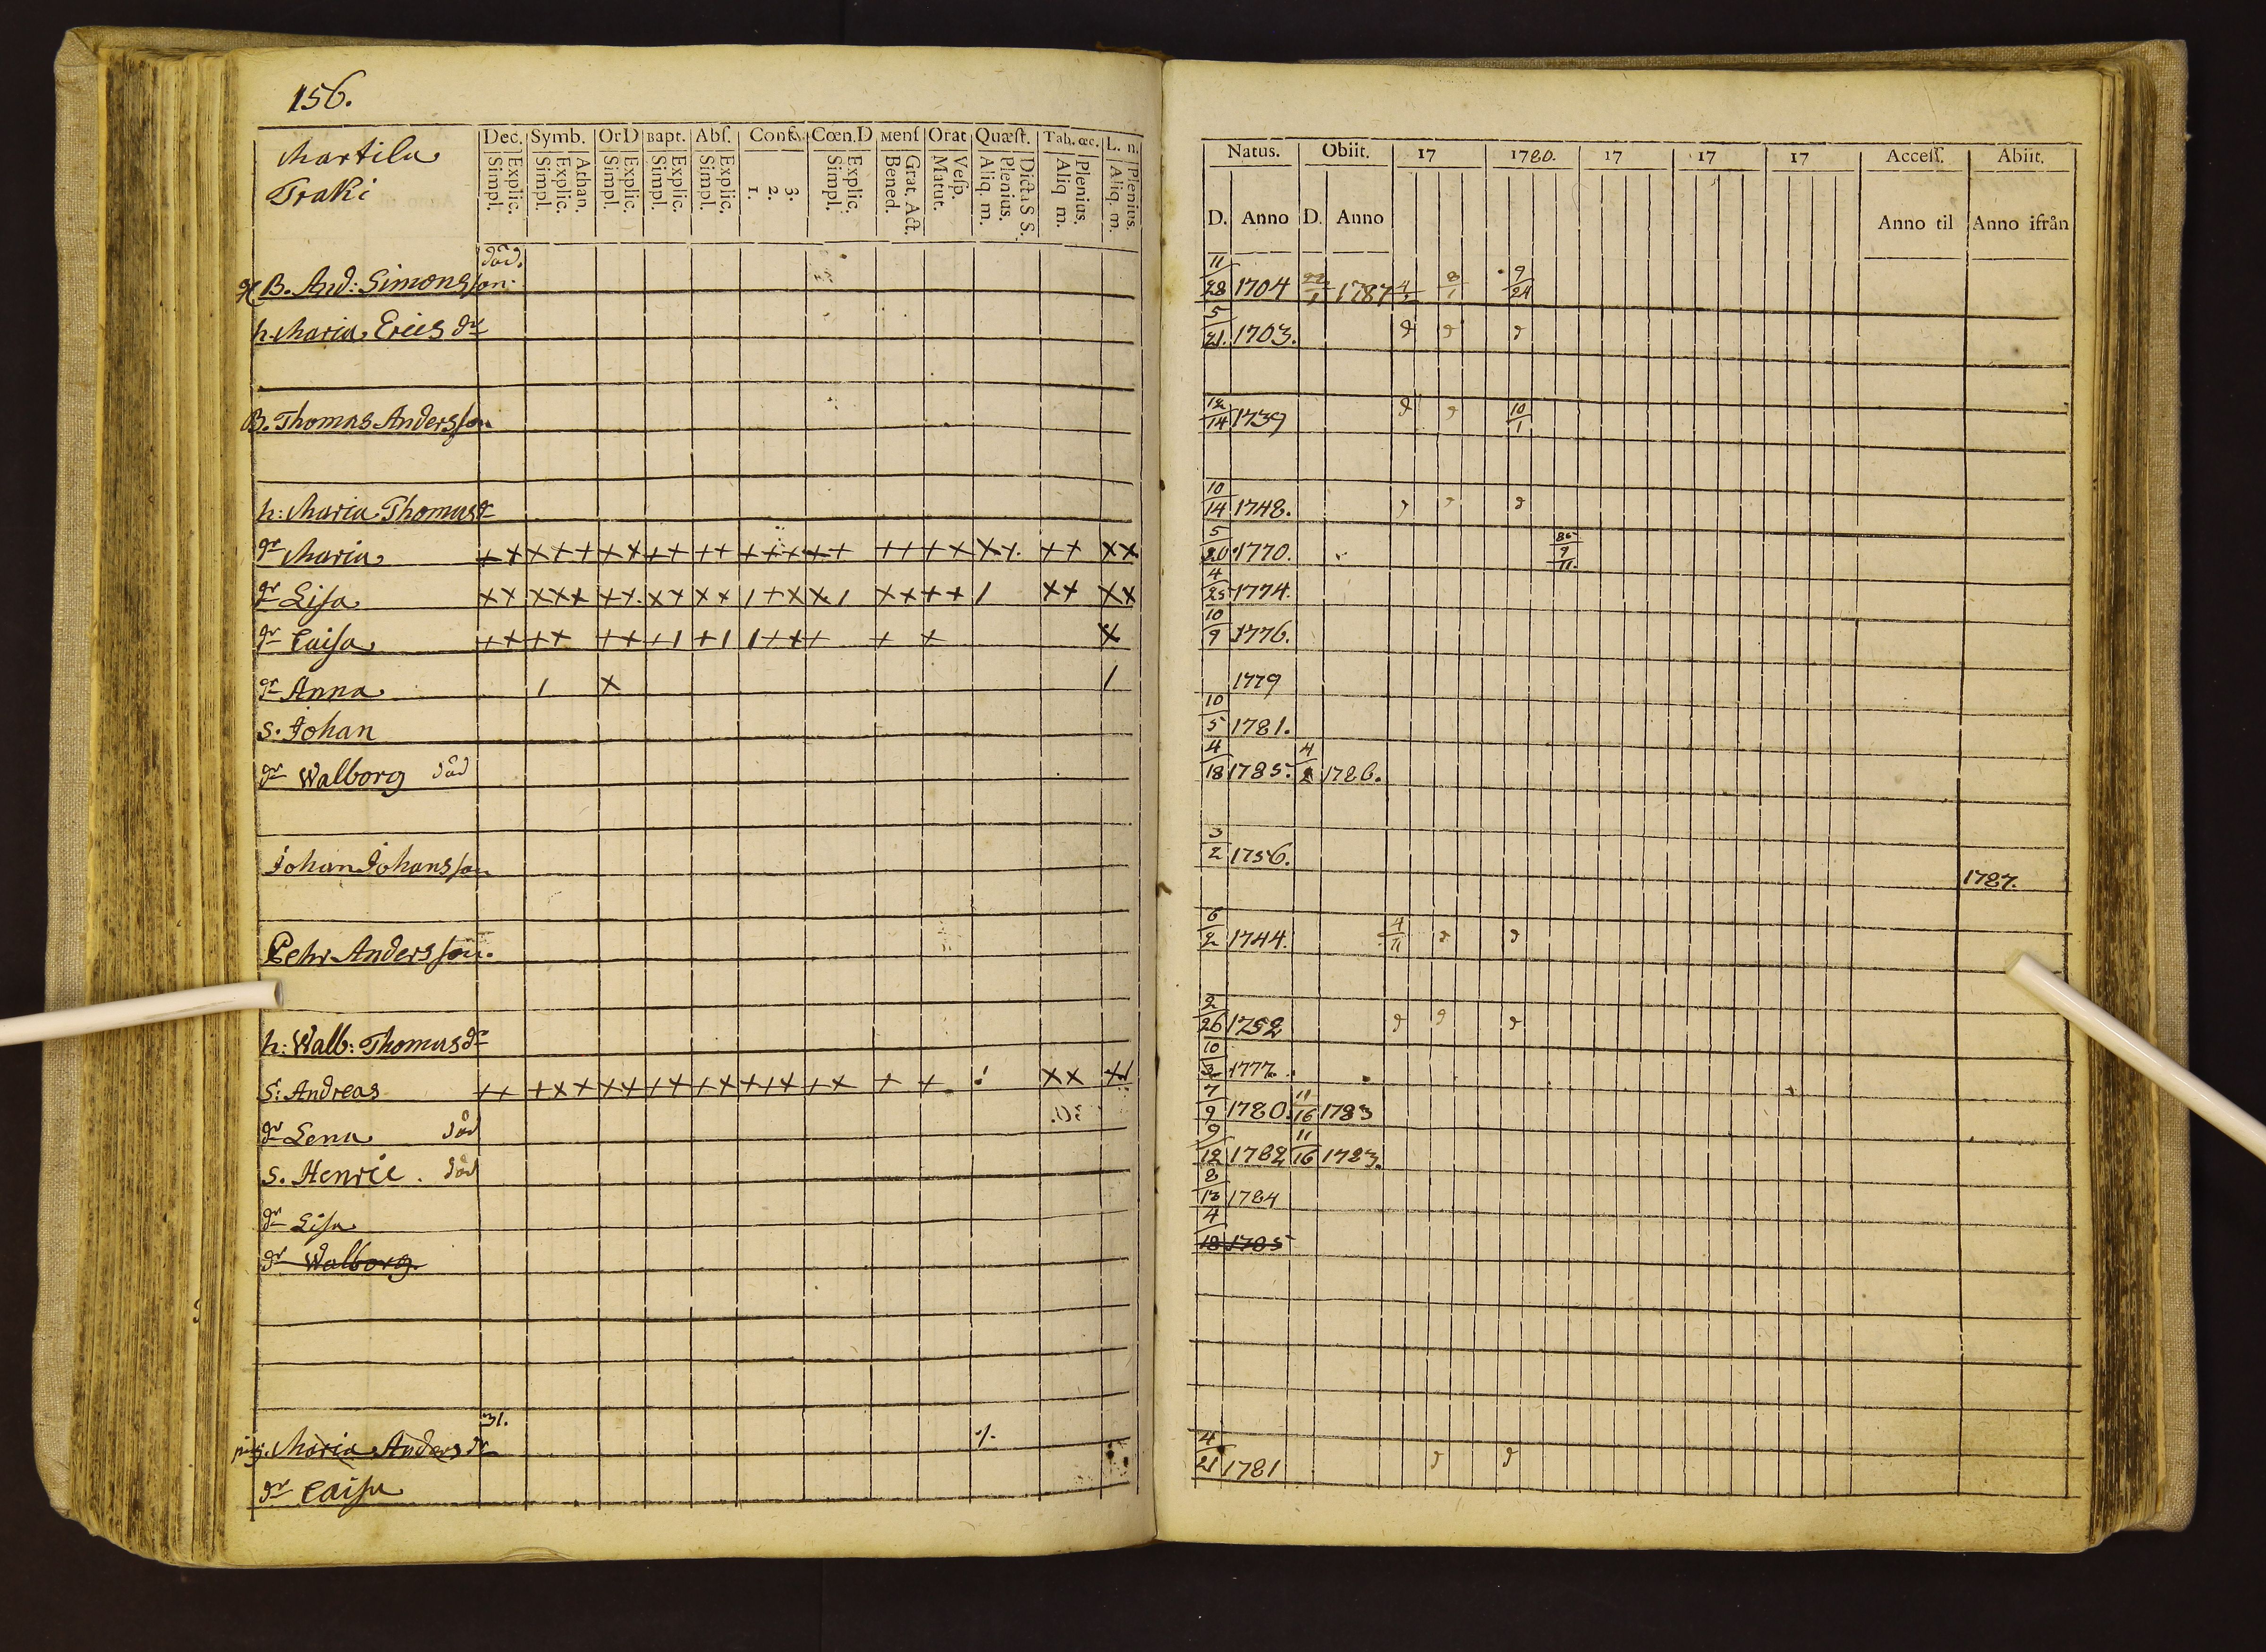 156.
Martila
Traki
Dec. Symb. OrD Bapt. Abſ. Conf. Cœn. D Menſ Orat Quæſt. Tab. œc. L. n.
Simpl. Explic. Simpl. Explic. Athan. Simpl. Explic. Simpl. Explic. Simpl. Explic. 1. 2. 3. Simpl. Explic. Bened. Grat. Act. Matut. Veſp. Aliq. m. Plenius. Dicta S S. Aliq m. Plenius. Aliq. m. Plenius.
död.
B. And: Simonsson.
h. Maria Erics dr
B. Thomas Andersson
h: Maria Thomasdr
dr Maria ++ +++ ++ ++ ++ +++ ++ ++ ++ ++ ++ ++
dr Lisa ++ +++ ++ ++ ++ /++ +/ ++ ++ / ++ ++
dr Caisa ++ ++ ++ +/ +/ /++ + + + +
dr Anna / + /
s. Johan
dr Walborg död
Johan Johansson
Pehr Andersson.
h: Walb: Thomasdr
S: Andreas ++ +++ ++ ++ ++ +++ ++ + + / ++ +/
dr Lena död
s. Henric. död
dr Lisa
dr Walborg.
31.
pig. Maria Anders dr
dr Caisa
Natus. Obiit. 17 1780. 17 17 17 Acceſſ. Abiit.
D. Anno D. Anno Anno til Anno ifrån
11/28 1704 22/1 1787 8/1 9/24
5/21. 1703.
12/14 1739 10/1
10/14 1748.
5/20 1770. 86 9/11.
4/25 1774.
10/9 1776.
1779
10/5 1781.
4/18 1785. 4/2 1786.
3/2 1756. 1787.
6/2 1744. 4/11
2/26 1752
10/3 1777.
7/9 1780. 11/16 1783
9/12 1782 11/16 1783.
8/13 1784
4/18 1785
4/21 1781